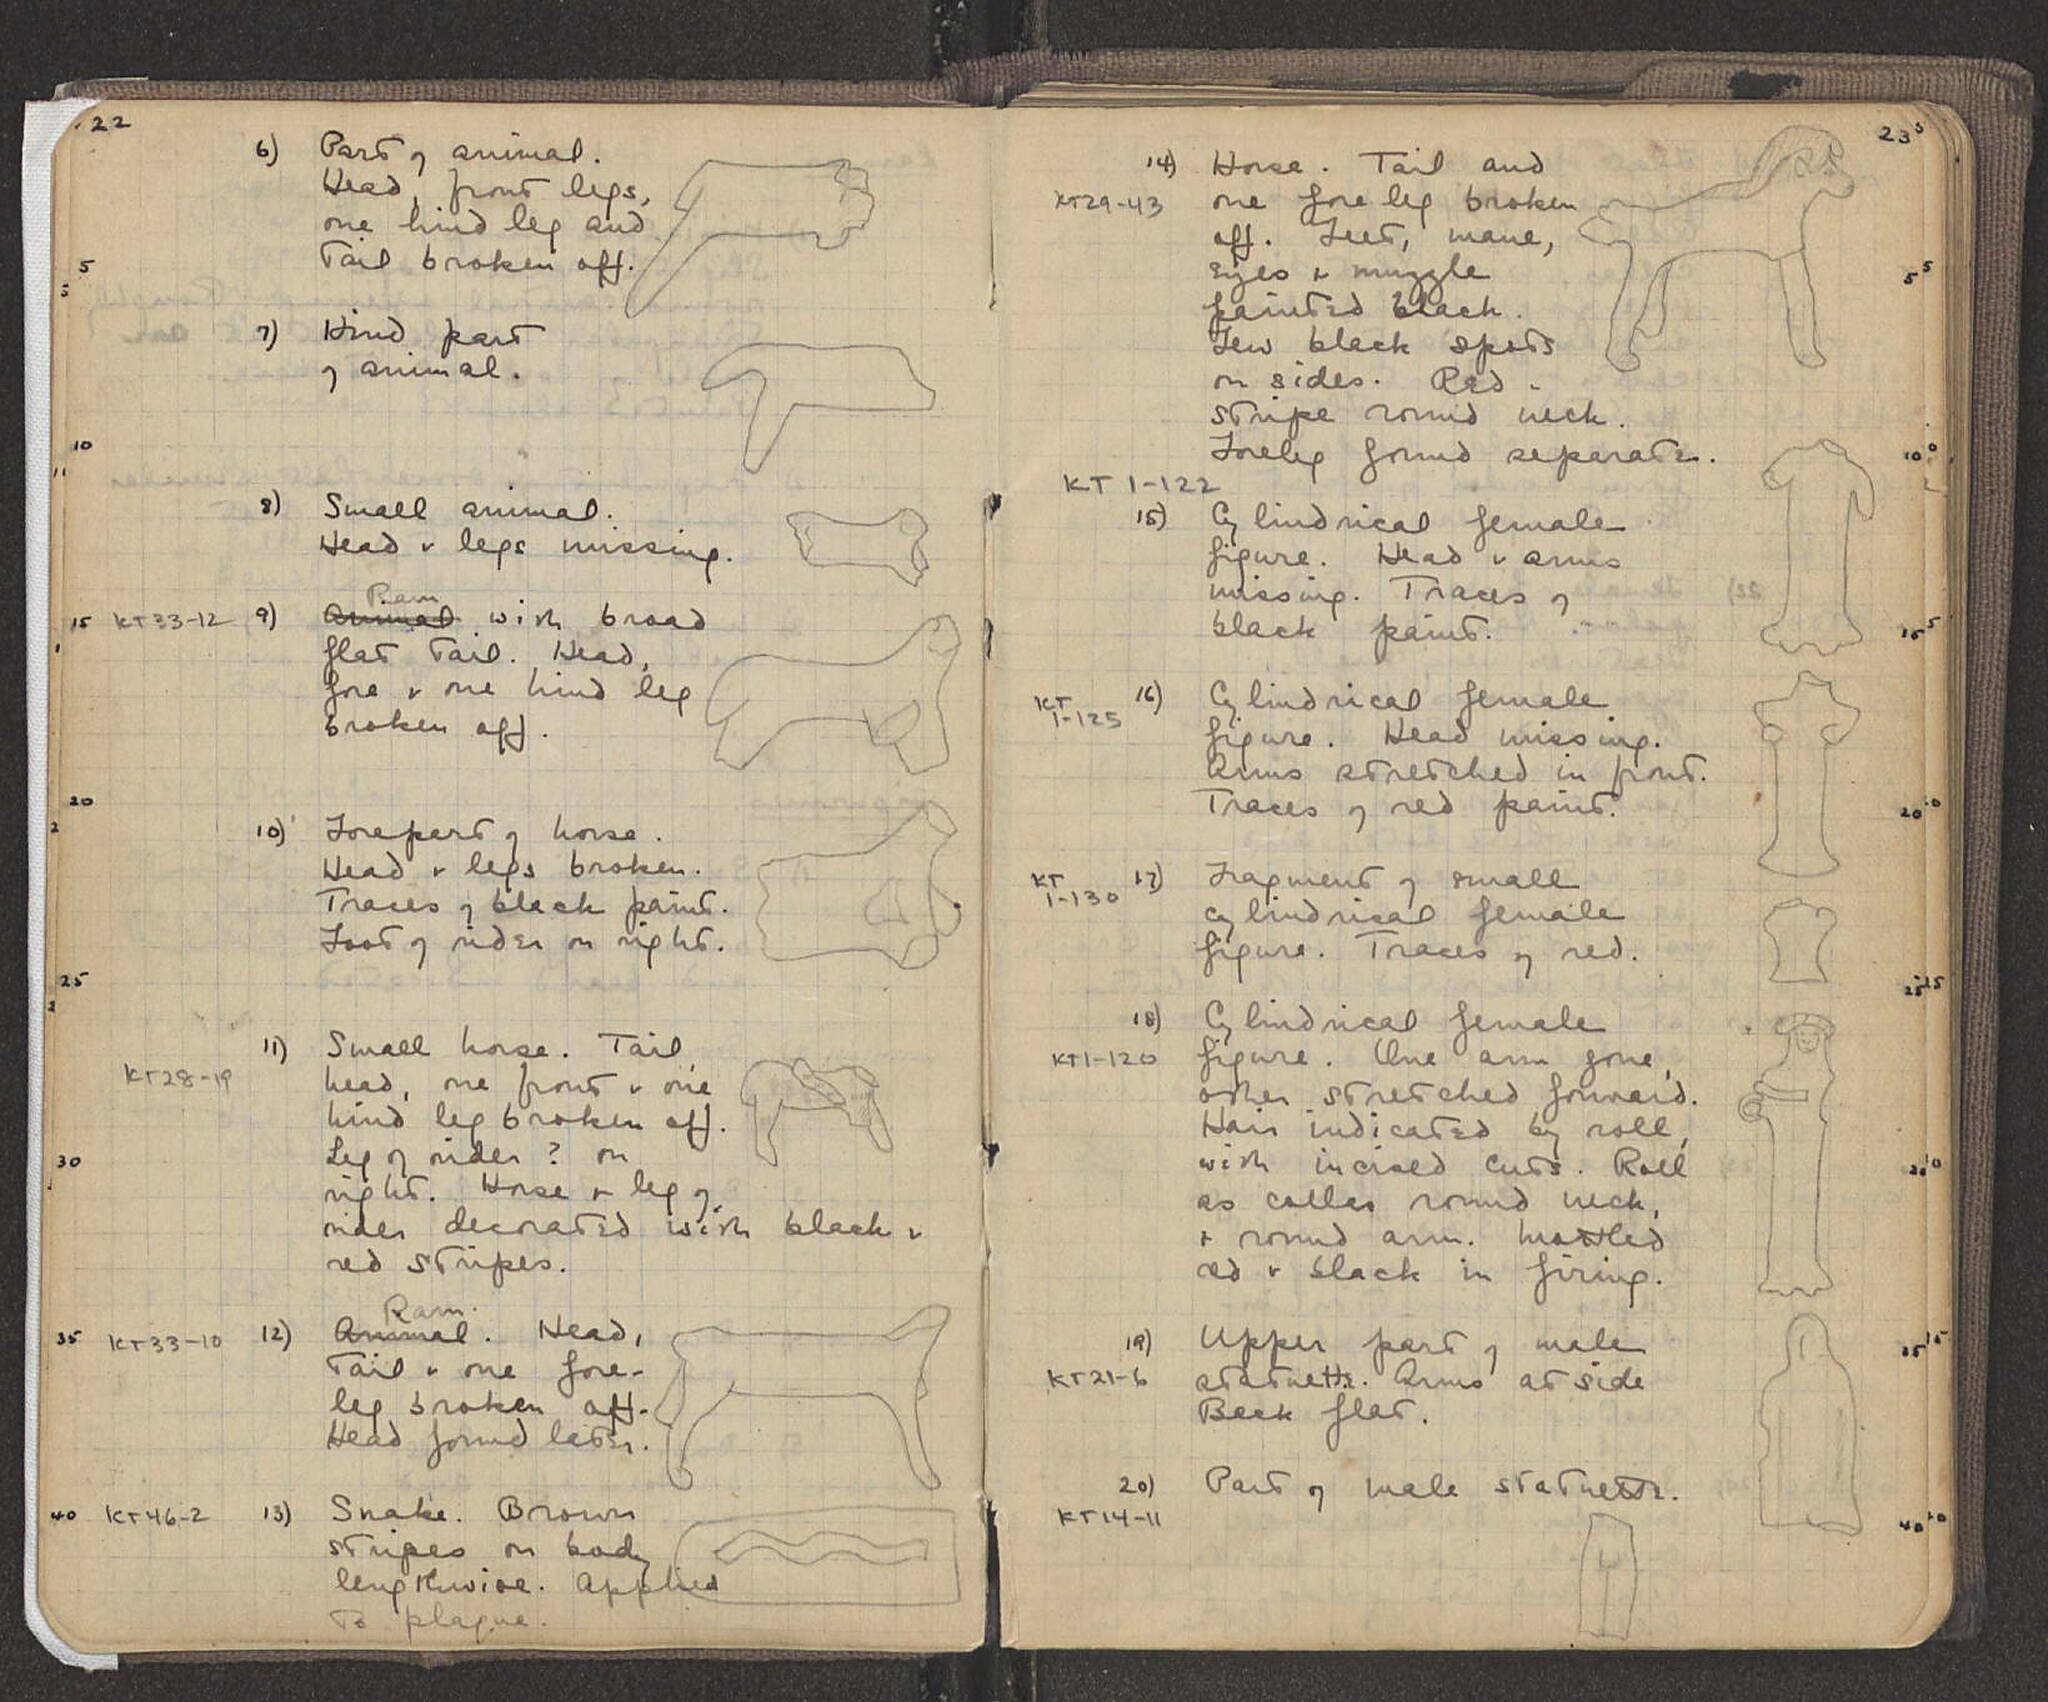 22
6) Part of animal.
Head, front legs,
one hind leg and
tail broken off.
7) Hind part
of animal.
8) Small animal.
Head + legs missing.
Ram
KT33-12 9) Animal with broad
flat tail. Head,
fore + one hind leg
broken off.
10) Forepart of horse.
Head + legs broken.
Traces of black paint.
Foot of rider on right.
11) Small horse. Tail,
KT28-19 head, one front + one
hind leg broken off.
Leg of rider? on
right. Horse + leg of
rider decorated with black +
red stripes.
Ram.
KT33-10 12) Animal. Head,
tail + one fore-
leg broken off.
Head found later.
KT46-2 13) Snake. Brown
stripes on body
lengthwise. Applied
to plaque.
5
10
15
20
25
30
35
40
23
14) Horse. Tail and
KT29-43 one foreleg broken
off. Feet, mane,
eyes + muzzle
painted black.
Few black spots
on sides. Red
stripe round neck.
Foreleg found separate.
KT 1-122
15) Cylindrical female
figure. Head + arms
missing. Traces of
black paint.
KT 1-125 16) Cylindrical female
figure. Head missing.
Arms stretched in front.
Traces of red paint.
KT 1-130 17) Fragment of small
cylindrical female
figure. Traces of red.
18) Cylindrical female
KT1-120 figure. One arm gone,
other stretched forward.
Hair indicated by roll,
with incised cuts. Roll
as collar round neck,
+ round arm. Mottled
red + black in firing.
19) Upper part of male
KT21-6 statuette. Arms at side
Back flat.
20) Part of male statuette.
KT14-11
5
10
15
20
25
35
40